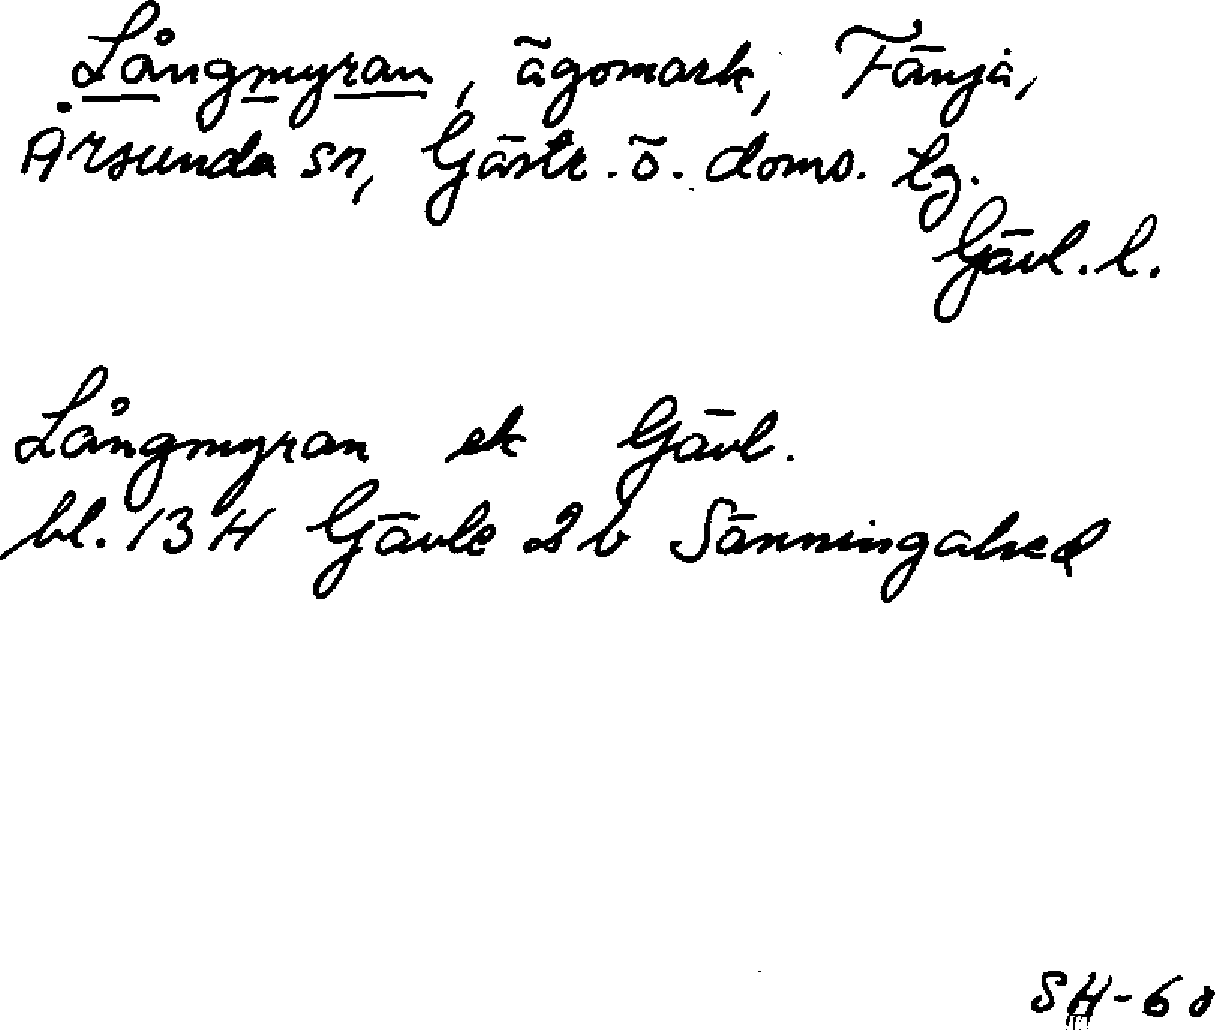 Långmyran, ägomark, Fänja,
Årsunda sn, Gästr. ö. doms. lg.
Gävl. l.
Långmyran ek Gävl.
bl. 13 H Gävle 2 b Sänningahed
SH-60